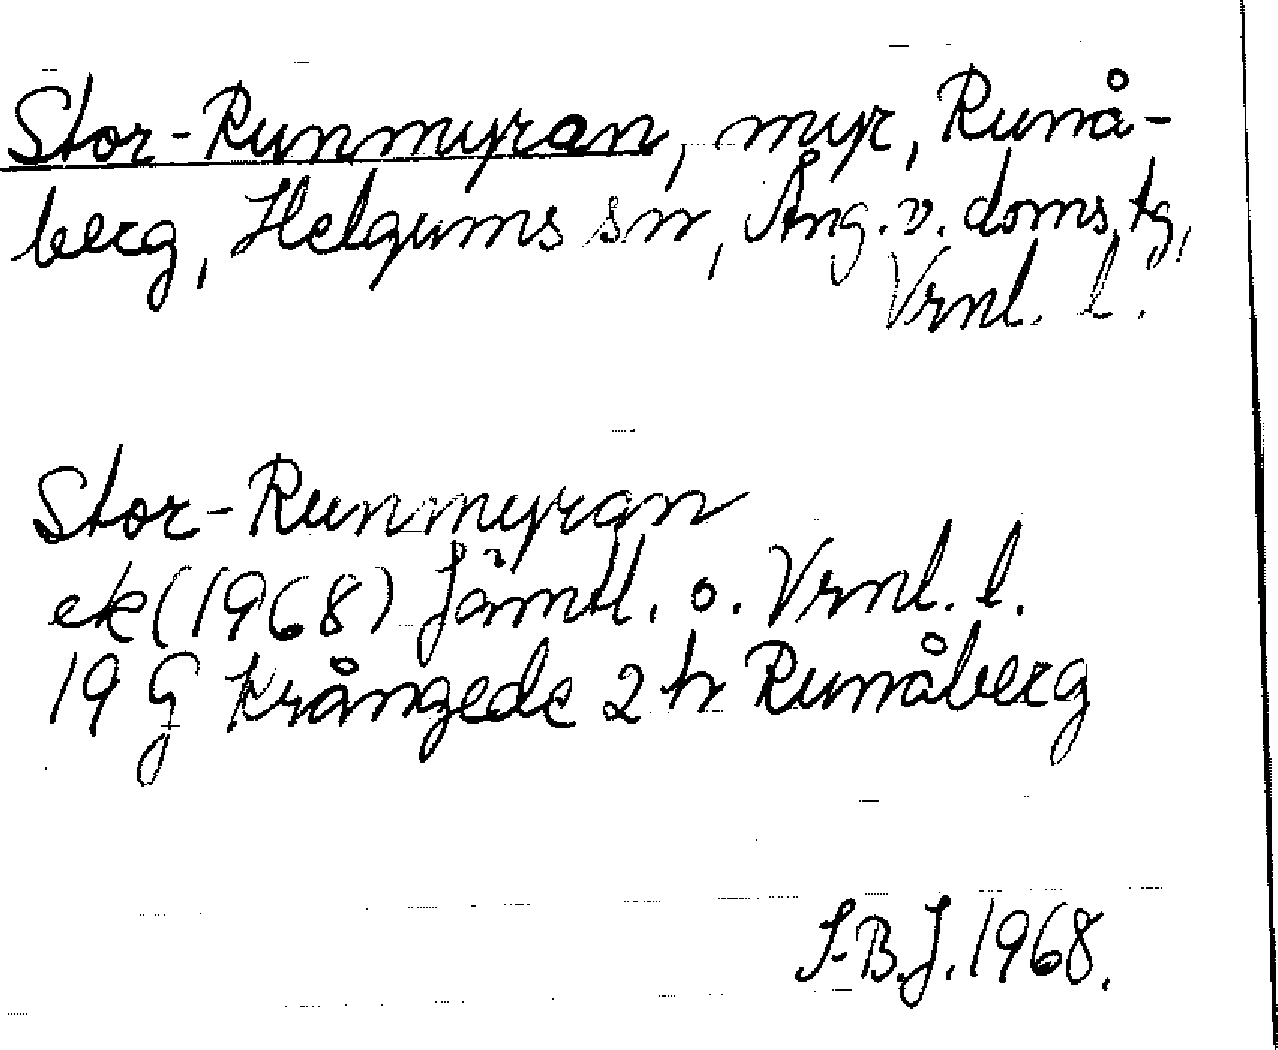 Stor-Runmyran, myr, Runå-
berg, Helgums sn, Ång. v. doms. tg,
Vrnl. l.
Stor-Runmyran
ek (1968) Jämtl. o. Vrnl. l.
19 G Krångede 2 h Runåberg
S-B.J. 1968.